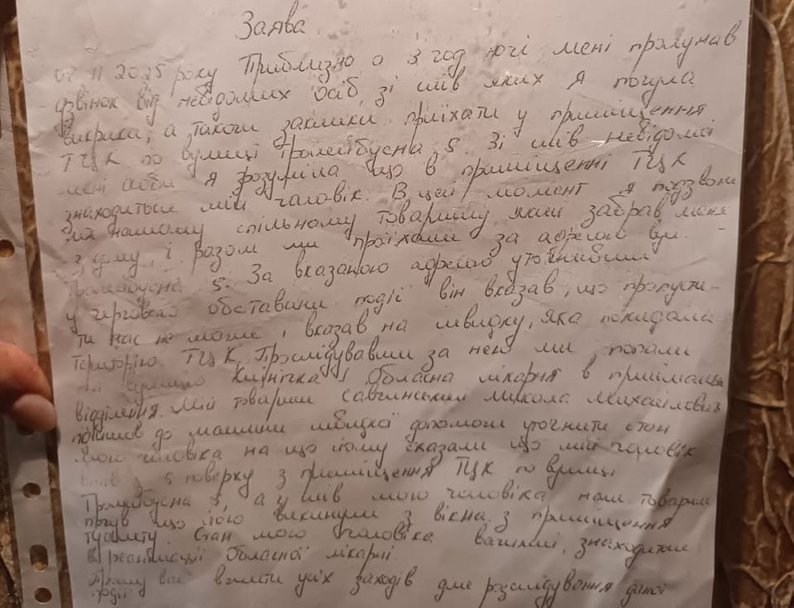 Заява
07 11 2025 року Приблизно о 3 год ночі мені пролунав
дзвінок від невідомих осіб, зі слів яких я почула
викрики, а також заклики приїхати у приміщення
ТЦК по вулиці Тролейбусна 5. Зі слів невідомої
мені я зрозуміла що в приміщенні ТЦК
знаходиться мій чоловік. В цей момент я подзвони
ла нашому спільному товаришу який забрав мене
з дому, і разом ми приїхали за адресою вул.
Тролейбусна 5. За вказаною адресою уточнивши
у чергового обставини події він вказав, що пропусти-
ти нас не може, і вказав на швидку, яка покидала
територію ТЦК. Прослідувавши за нею ми попали
на вулицю Клінічка 1 Обласна лікарня в приймальн
відділення. Мій товариш Савчинський Микола Михайлович
пішов до машини швидкої допомоги уточнити стан
мого чоловіка на що йому сказали що мій чоловік
з 5 поверху з приміщення ТЦК по вулиці
Тролейбусна 5, а зі слів мого чоловіка наш товариш
почув що його викинули з вікна з приміщення
туалету. Стан мого чоловіка важкий, знаходиться
в реанімації Обласної лікарні.
Прошу вас вжити усіх заходів для розслідування даної
події